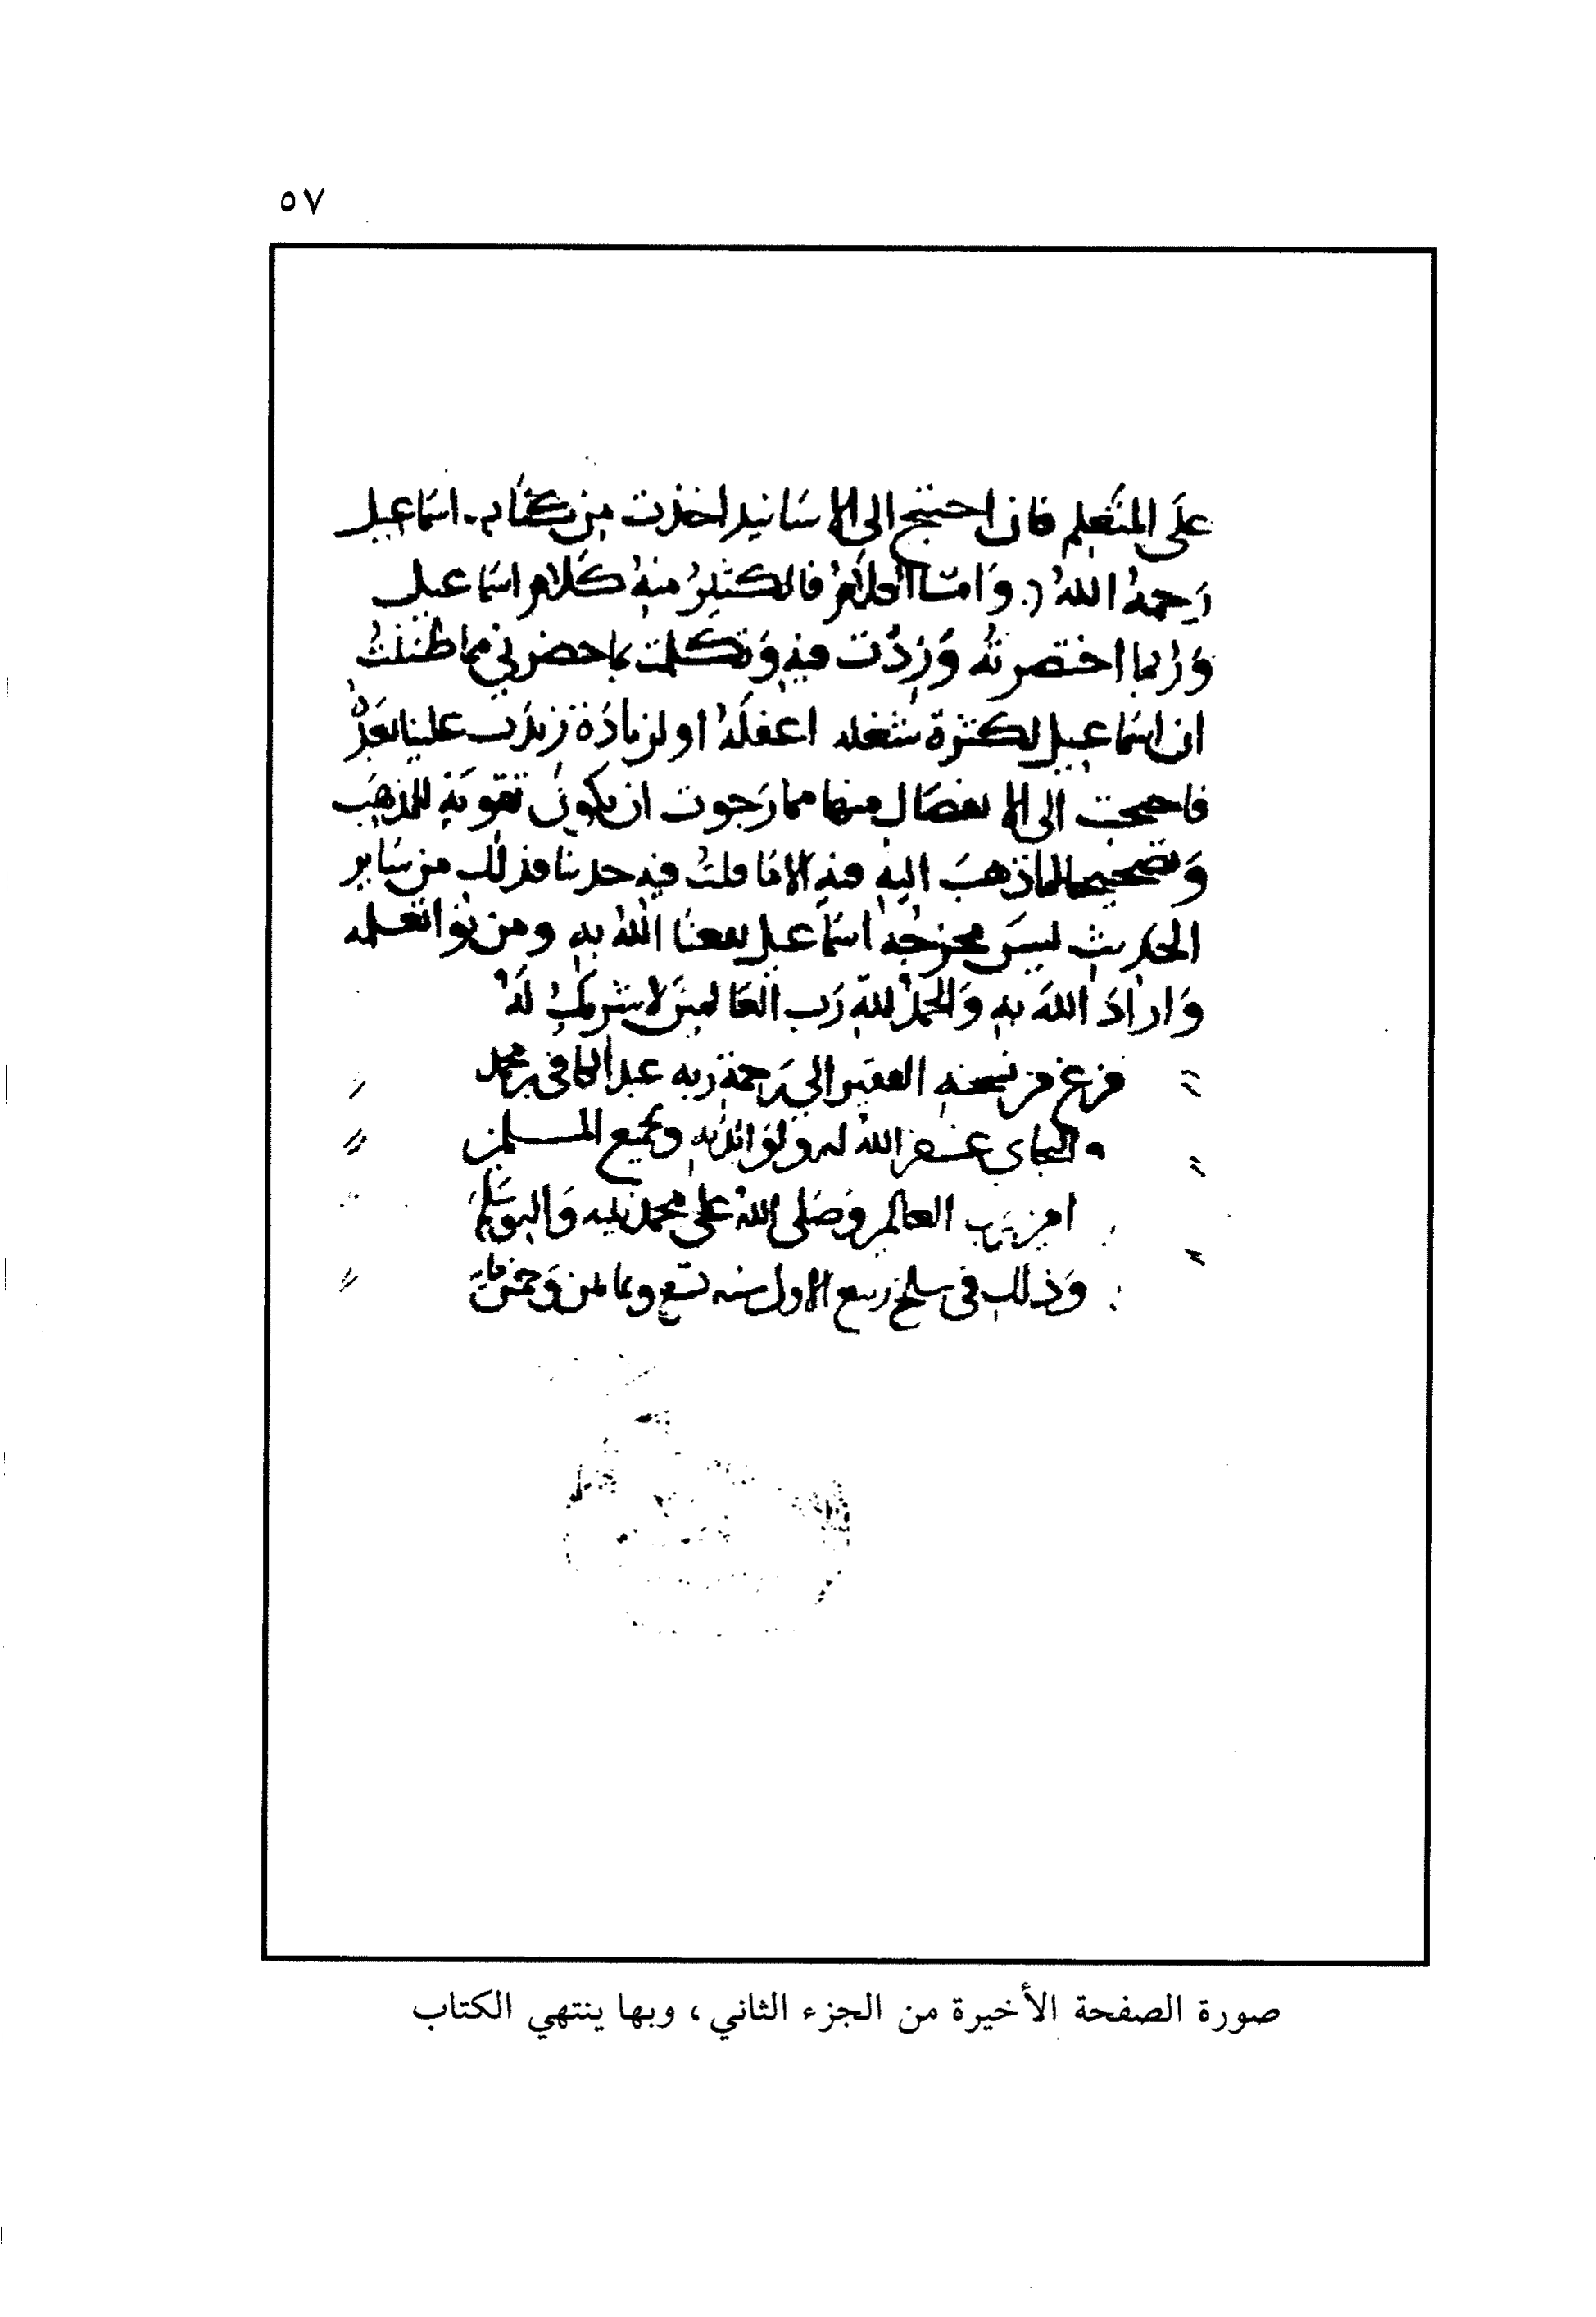 ٥٧
علَى المتعَلم فان احتيج الى الاسَانيد اخذت من كتاب اسمَاعيل
رَحمهُ اللهُ وَامّا الكلامُ فالكثيرُ منهُ كَلام اسمَاعيل
وَربما اختصرتهُ وَزدْت فيهِ وَتكلمت بما حضرني مما ظننتُ
ان اسمَاعيل لكثرة شغله اغفلَهُ او لزيادَة زيدَت علينا بَعدْ
فاحتجت الى الانفصَال منها مما رَجوت ان يكون تقويَة للمذهَب
وَتصحيحا لما ذهبَ اليه فيهِ الا مَا قلتُ فيه حدثنا فذلك من سَاير
الحَديث ليسَ مخرجه اسمَاعيل نفعنَا اللهُ به ومن نوا تعلمه
وَارَادَ اللهَ به وَالحمدُ للهِ رَب العَالمينَ لا شريكَ لَهُ
فرغ من نسخه الفقير الى رَحمة ربه عبد الكافي بن محمد
غفر الله له ولوَالديه ولجميع المسلمين
امين رَب العالمين وَصَلى اللهُ على محمد نبيه وَاله وَسَلم
وَذلك في سلخ ربيع الاول سنه تسع وثمانين وَخمس مايَة
صورة الصفحة الأخيرة من الجزء الثاني ، وبها ينتهي الكتاب